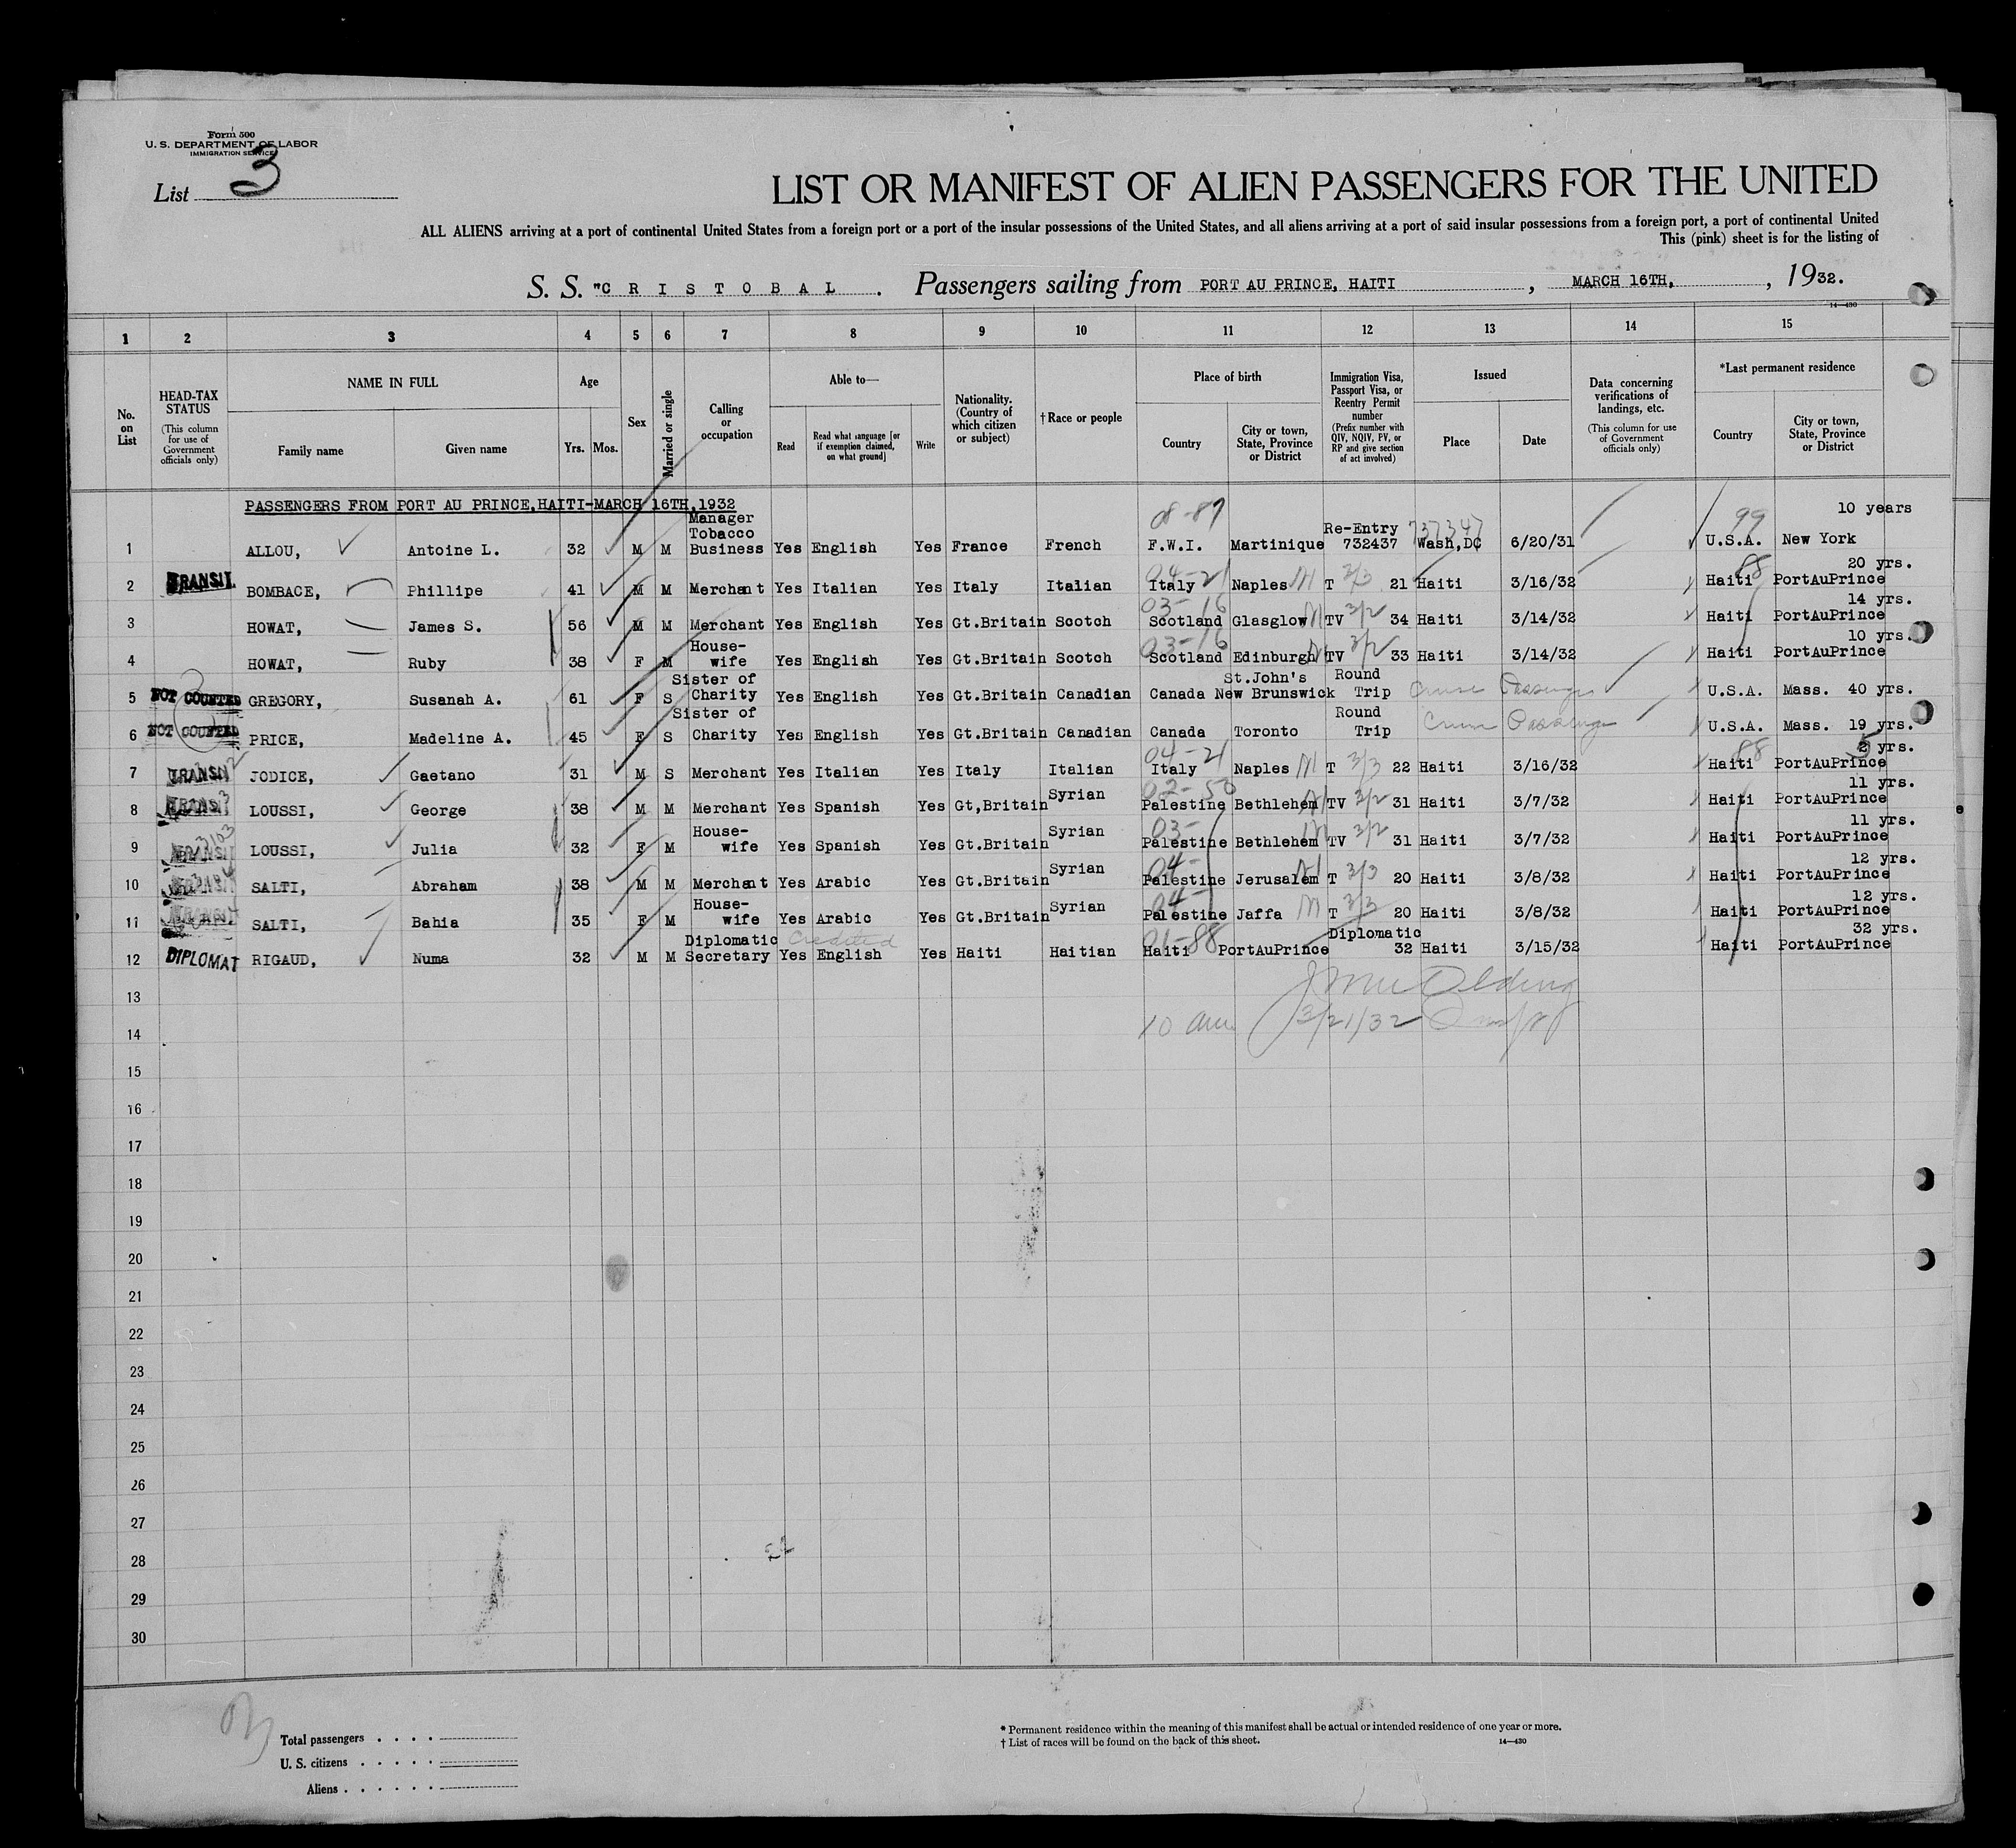 Form 500
U. S. DEPARTMENT OF LABOR
IMMIGRATION SERVICE
List 3
LIST OR MANIFEST OF ALIEN PASSENGERS FOR THE UNITED
ALL ALIENS arriving at a port of continental United States from a foreign port or a port of the insular possessions of the United States, and all aliens arriving at a port of said insular possessions from a foreign port, a port of continental United
This (pink) sheet is for the listing of
S. S. "C R I S T O B A L . Passengers sailing from PORT AU PRINCE, HAITI , MARCH 16TH, , 1932.
14—430
1 2 3 4 5 6 7 8 9 10 11 12 13 14 15
No. on List
HEAD-TAX STATUS (This column for use of Government officials only)
NAME IN FULL
Family name
Given name
Age
Yrs. Mos.
Sex
Married or single
Calling or occupation
Able to—
Read
Read what language [or if exemption claimed, on what ground]
Write
Nationality. (Country of which citizen or subject)
† Race or people
Place of birth
Country
City or town, State, Province or District
Immigration Visa, Passport Visa, or Reentry Permit number (Prefix number with QIV, NQIV, PV, or RP and give section of act involved)
Issued
Place
Date
Data concerning verifications of landings, etc. (This column for use of Government officials only)
*Last permanent residence
Country
City or town, State, Province or District
PASSENGERS FROM PORT AU PRINCE,HAITI-MARCH 16TH,1932
1 ALLOU, Antoine L. 32 M M Manager Tobacco Business Yes English Yes France French 08-87 F.W.I. Martinique Re-Entry 732437 737347 Wash,DC 6/20/31 99 U.S.A. New York 10 years
2 TRANSIT BOMBACE, Phillipe 41 M M Merchant Yes Italian Yes Italy Italian 04-21 Italy Naples M T 3/3 21 Haiti 3/16/32 88 Haiti PortAuPrince 20 yrs.
3 HOWAT, James S. 56 M M Merchant Yes English Yes Gt.Britain Scotch 03-16 Scotland Glasglow M TV 3/2 34 Haiti 3/14/32 Haiti PortAuPrince 14 yrs.
4 HOWAT, Ruby 38 F M House-wife Yes English Yes Gt.Britain Scotch 03-16 Scotland Edinburgh M TV 3/2 33 Haiti 3/14/32 Haiti PortAuPrince 10 yrs.
5 NOT COUNTED GREGORY, Susanah A. 61 F S Sister of Charity Yes English Yes Gt.Britain Canadian Canada St.John's New Brunswick Round Trip Cruise Passenger U.S.A. Mass. 40 yrs.
6 NOT COUNTED PRICE, Madeline A. 45 F S Sister of Charity Yes English Yes Gt.Britain Canadian Canada Toronto Round Trip Cruise Passenger U.S.A. Mass. 19 yrs.
7 TRANSIT JODICE, Gaetano 31 M S Merchant Yes Italian Yes Italy Italian 04-21 Italy Naples M T 3/3 22 Haiti 3/16/32 88 Haiti PortAuPrince 5 yrs.
8 TRANSIT LOUSSI, George 38 M M Merchant Yes Spanish Yes Gt,Britain Syrian 02-50 Palestine Bethlehem M TV 3/2 31 Haiti 3/7/32 Haiti PortAuPrince 11 yrs.
9 TRANSIT LOUSSI, Julia 32 F M House-wife Yes Spanish Yes Gt.Britain Syrian 03- Palestine Bethlehem M TV 3/2 31 Haiti 3/7/32 Haiti PortAuPrince 11 yrs.
10 TRANSIT SALTI, Abraham 38 M M Merchant Yes Arabic Yes Gt.Britain Syrian 04- Palestine Jerusalem M T 3/3 20 Haiti 3/8/32 Haiti PortAuPrince 12 yrs.
11 TRANSIT SALTI, Bahia 35 F M House-wife Yes Arabic Yes Gt.Britain Syrian 04- Palestine Jaffa M T 3/3 20 Haiti 3/8/32 Haiti PortAuPrince 12 yrs.
12 DIPLOMAT RIGAUD, Numa 32 M M Diplomatic Secretary Credited Yes English Yes Haiti Haitian 01-88 Haiti PortAuPrince Diplomatic 32 Haiti 3/15/32 Haiti PortAuPrince 32 yrs.
13
14 10 am 3/21/32
15
16
17
18
19
20
21
22
23
24
25
26
27
28
29
30
Total passengers . . . .
U. S. citizens . . . . .
Aliens . . . . . .
* Permanent residence within the meaning of this manifest shall be actual or intended residence of one year or more.
† List of races will be found on the back of this sheet.
14—430